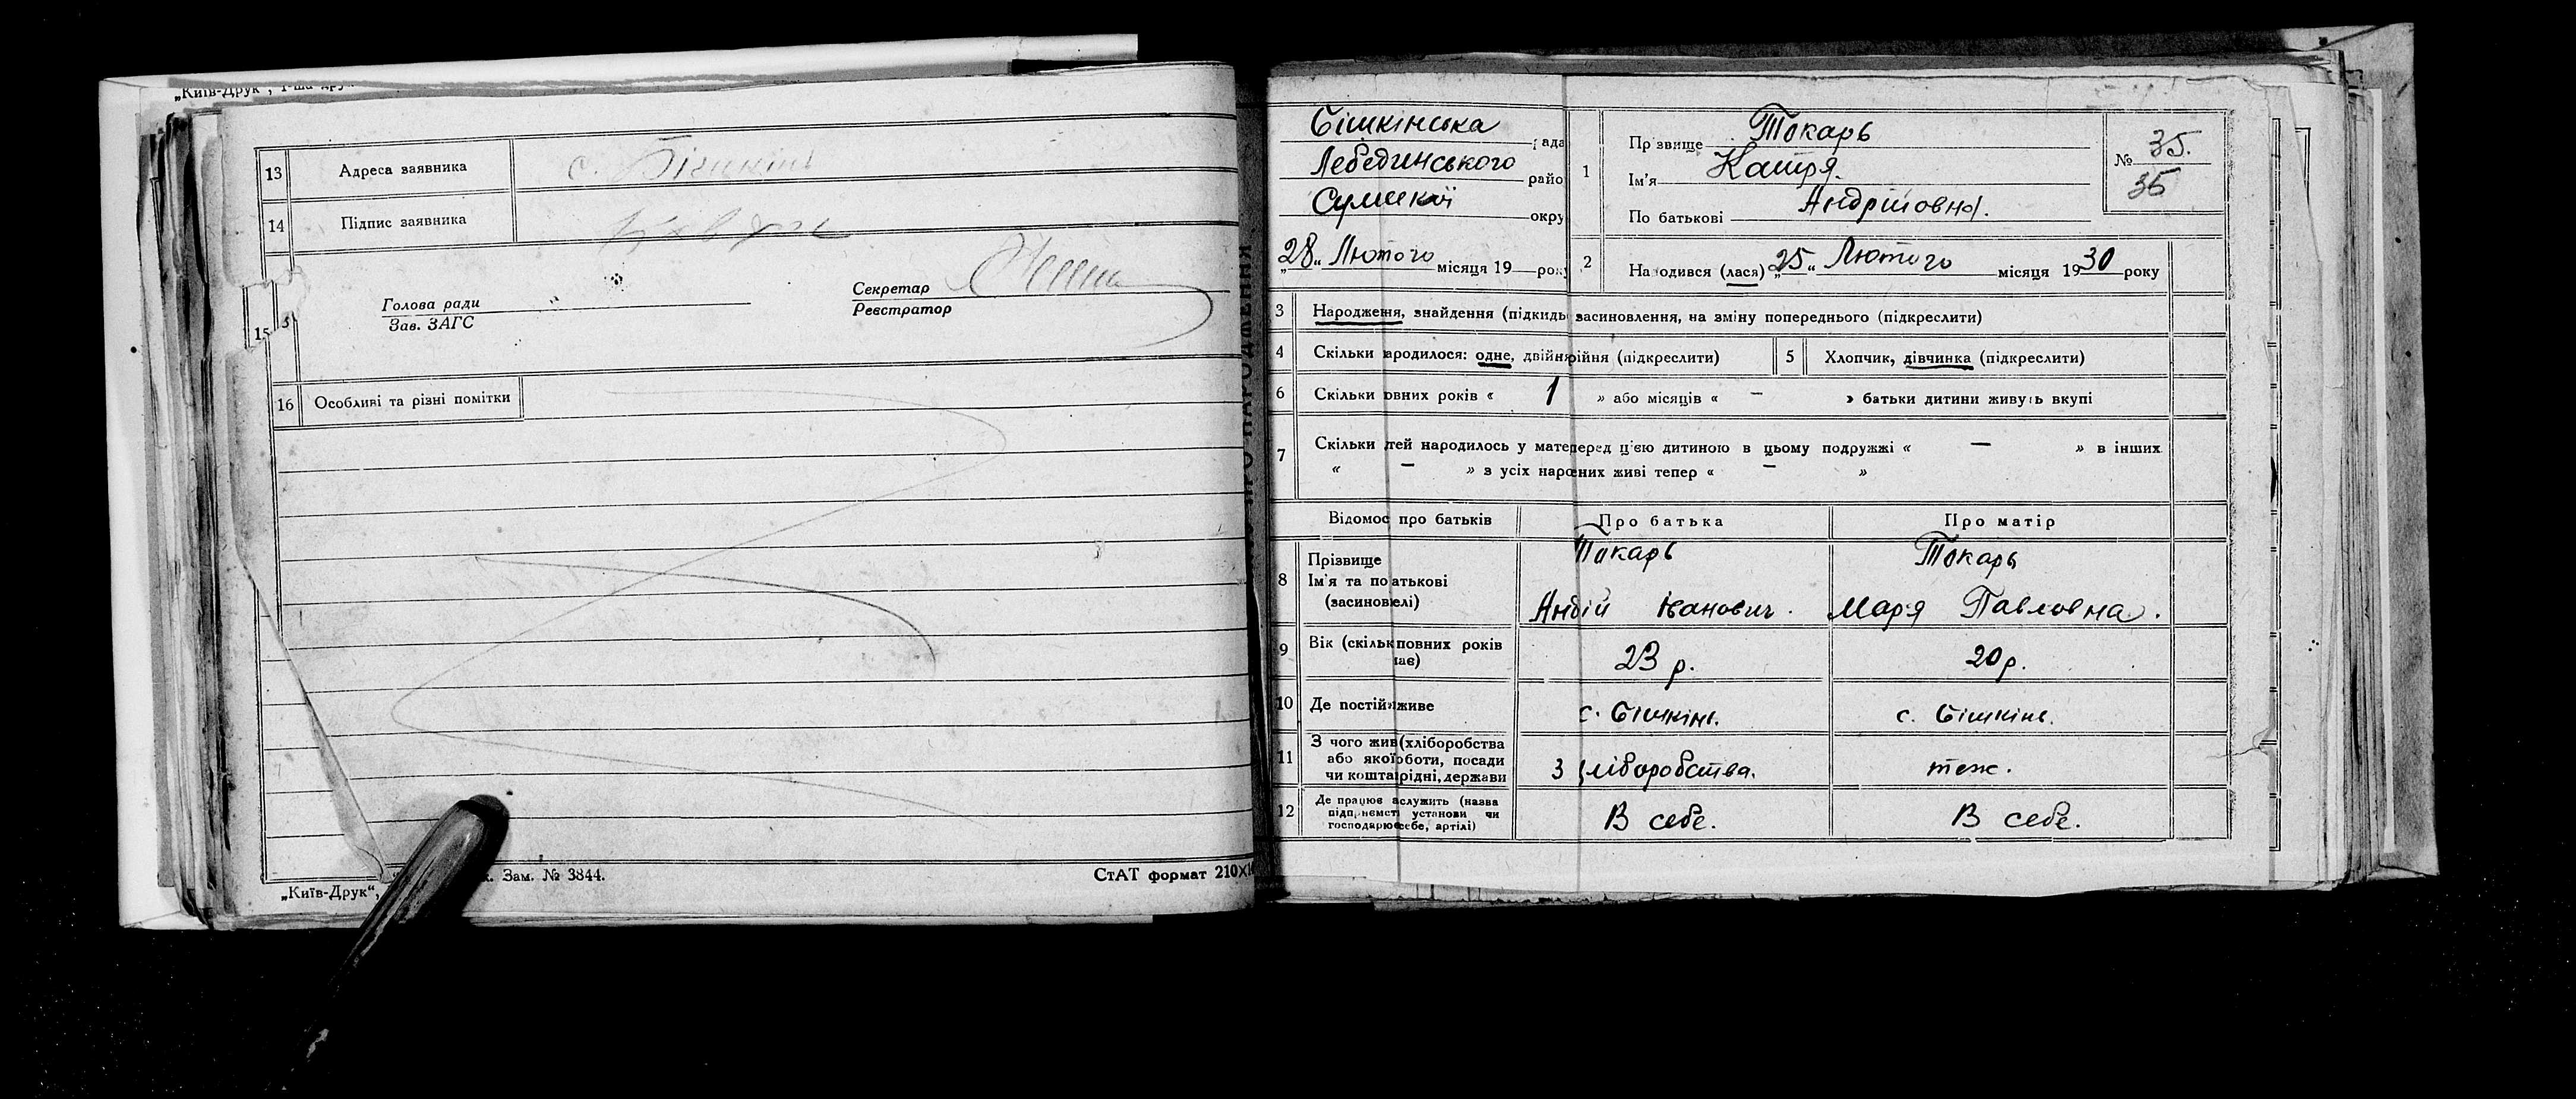 „Київ-Друк",
13 Адреса заявника с. Бішкінь
14 Підпис заявника
Секретар
Голова ради Реєстратор
Зав. ЗАГС
15
16 Особливі та різні помітки
„Київ-Друк", Зам. № 3844. СтАТ формат 210×
Бішкінська рада
Лебединського райо
Сумської окру
„28" Лютого місяця 19 року
1 Прізвище Токарь
Ім'я Катря.
По батькові Андрііовна.
№ 35.
35
2 Народився (лася) „25" Лютого місяця 1930 року
3 Народження, знайдення (підкидь засиновлення, на зміну попереднього (підкреслити)
4 Скільки народилося: одне, двійня рійня (підкреслити) 5 Хлопчик, дівчинка (підкреслити)
6 Скільки овних років « 1 » або місяців « — » батьки дитини живуть вкупі
7 Скільки тей народилось у мате перед цією дитиною в цьому подружжі « — » в інших
« — » з усіх нароених живі тепер « — »
Відомос про батьків Про батька Про матір
8 Прізвище Токарь Токарь
Ім'я та по атькові
(засиновелі) Андій Іванович. Маря Павловна.
9 Вік (скільк повних років має) 23 р. 20 р.
10 Де постій живе с. Бішкінь. с. Бішкінь.
11 З чого жив (хліборобства
або якої оботи, посади
чи кошта рідні, держави З хліборобства. теж.
12 Де працює служить (назва
підприємст установи чи
господарю себе, артілі) В себе. В себе.